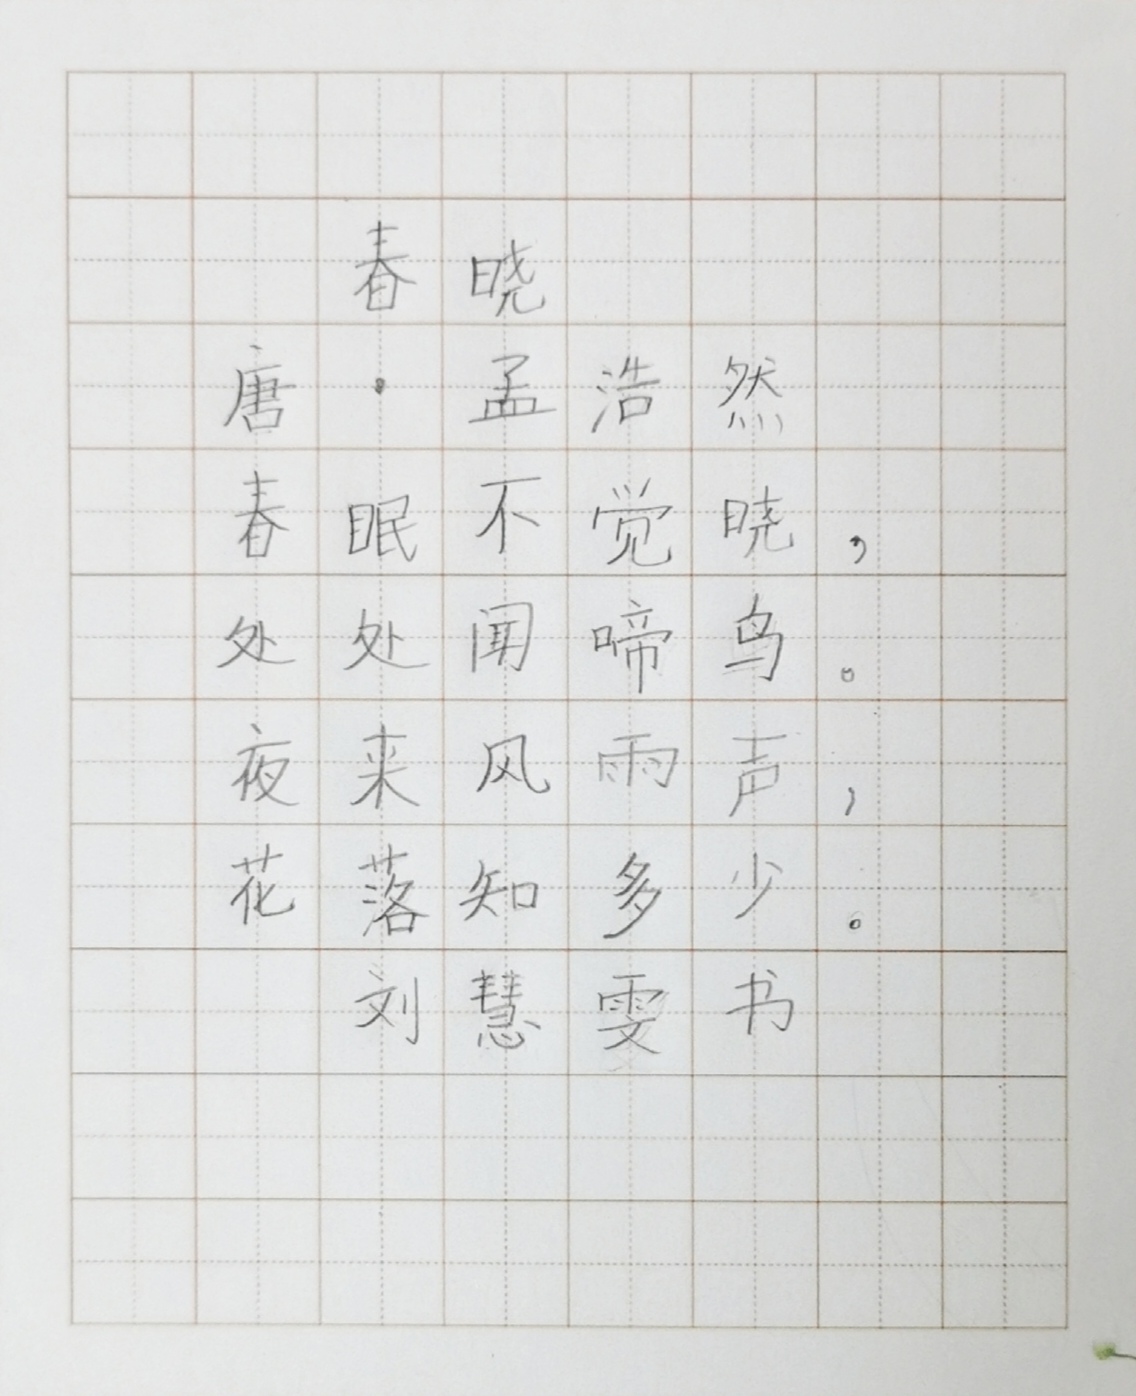 春晓
唐·孟浩然
春眠不觉晓，
处处闻啼鸟。
夜来风雨声，
花落知多少。
刘慧雯书